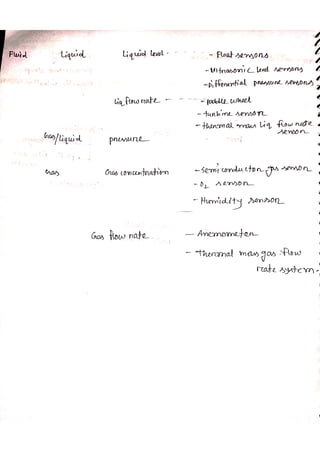 Fluid Liquid Liquid level - - Float sensors
- Ultrasonic level sensors
- Differential pressure sensors
Liq. flow rate - - paddle wheel
- turbine sensor
- thermal mass Liq flow rate sensor
Gas/liquid pressure
Gas Gas concentration - Semiconductor gas sensor
- O2 sensor
- Humidity sensor
Gas flow rate - Anemometer
- thermal mass gas flow
rate system.